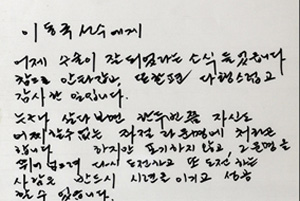 이동국 선수에게
어제 수술이 잘 되었다는 소식 들었습니다
참으로 안타깝고, 또 한편 다행스럽고
감사한 일입니다.
누구나 살다보면 한두번쯤 자신도
어찌 할수 없는 좌절과 운명에 처하곤
합니다. 하지만 포기하지 않고, 그 운명을
뛰어 넘으려 다시 도전하고 또 도전하는
사람은 반드시 시련을 이기고 성공
할 수 있습니다.